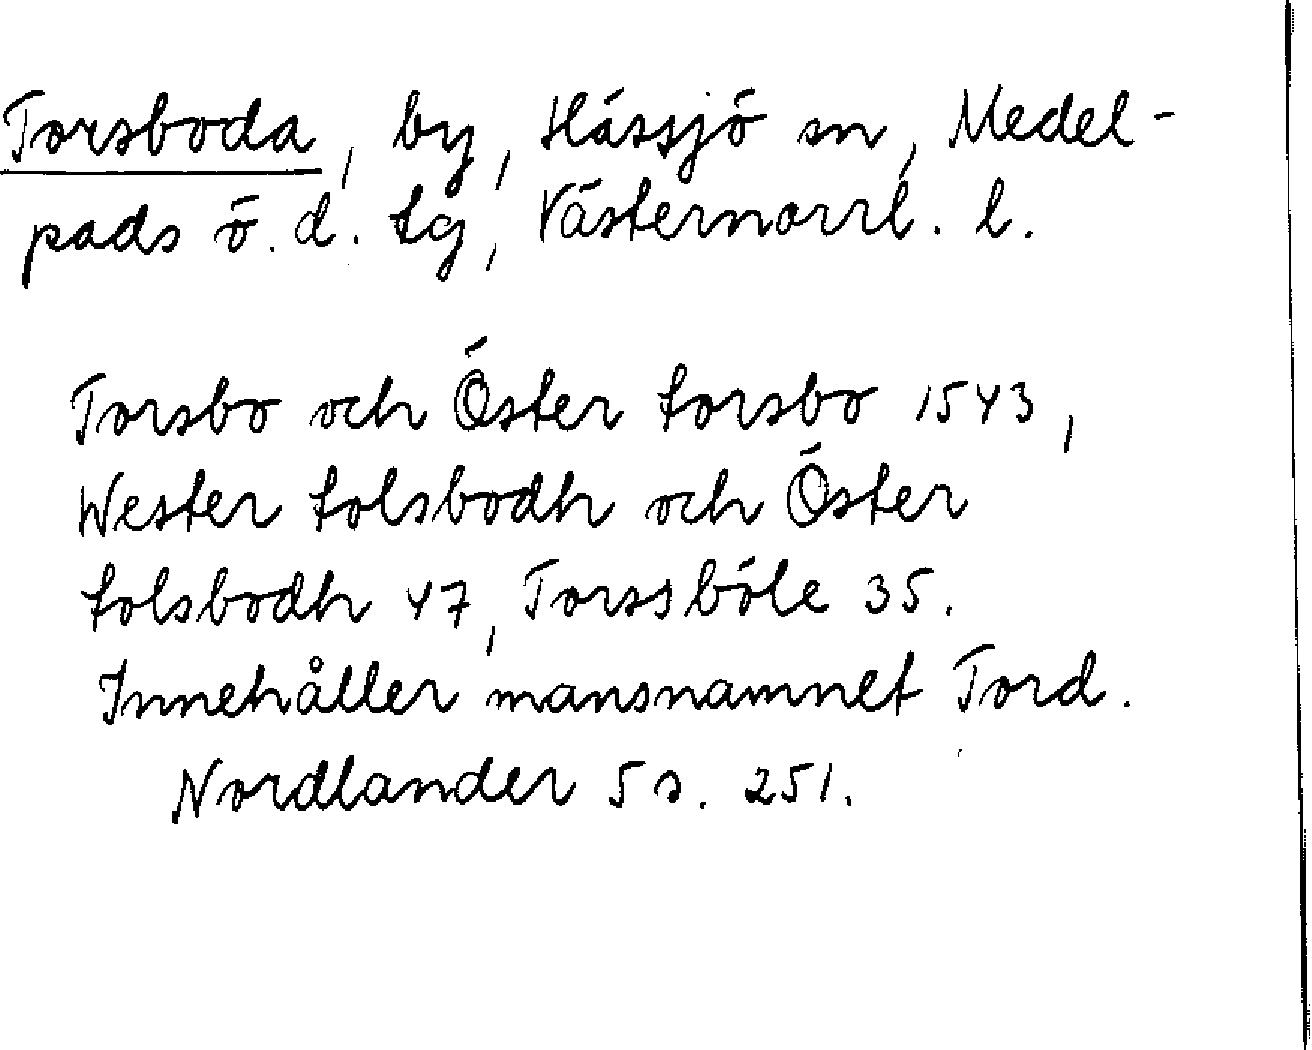 Torsboda, by, Hässjö sn, Medel-
pads ö. d. tg, Västernorrl. l.
Torsbo och Öster torsbo 1543,
Wester tolsbodh och Öster
tolsbodh 47, Torssböle 35.
Innehåller mansnamnet Tord.
Nordlander 5 s. 251.